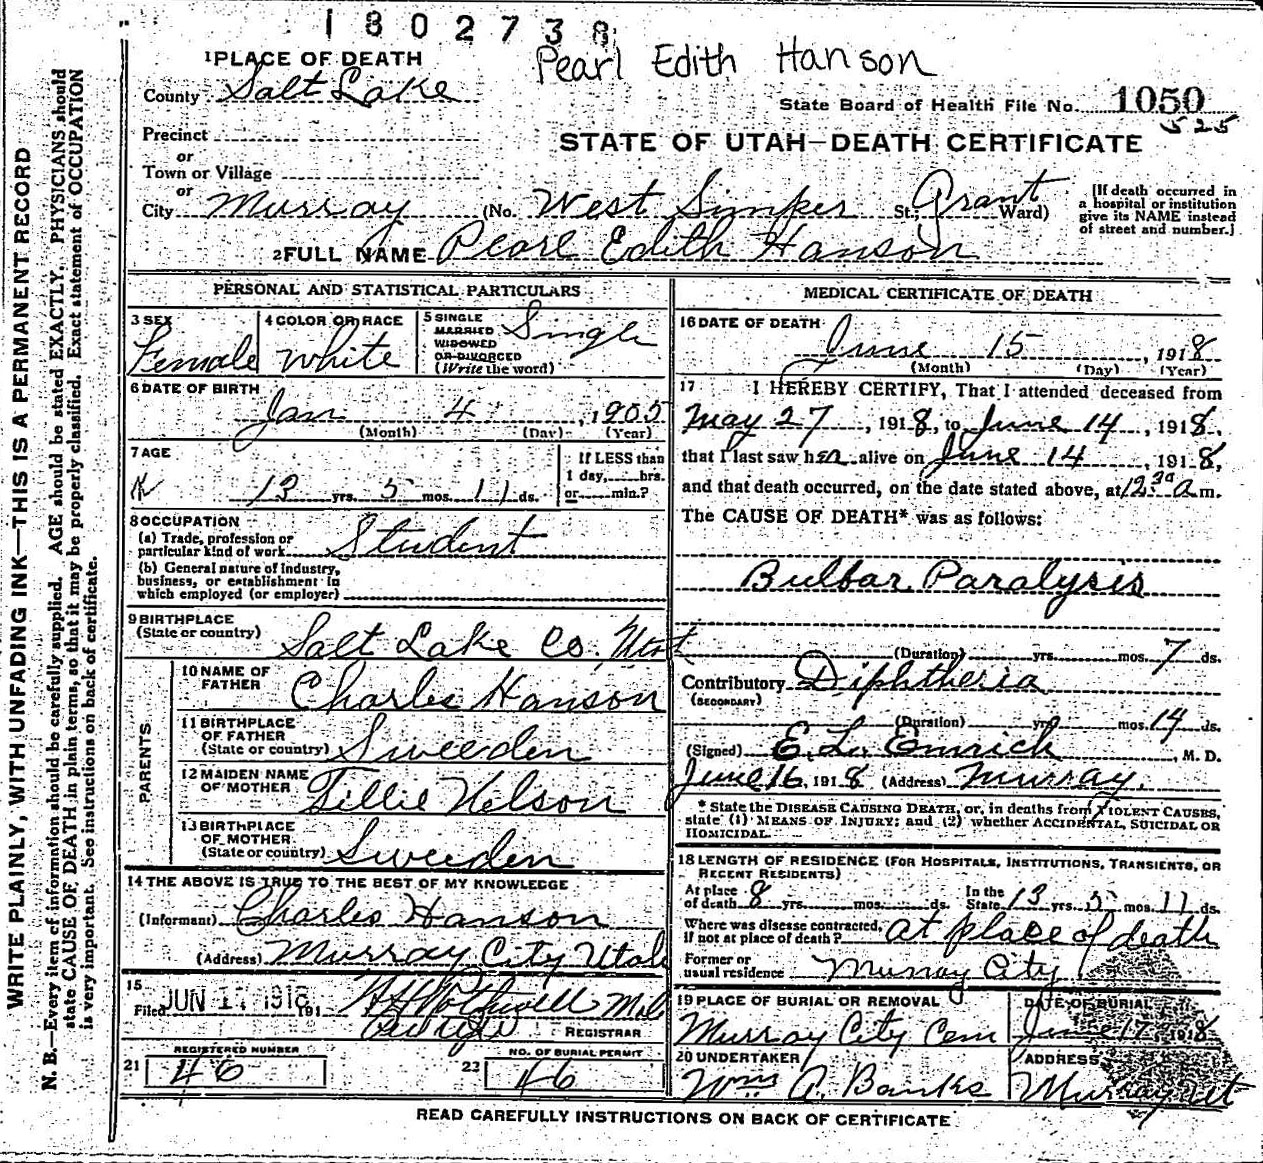 1802738
Pearl Edith Hanson
1 PLACE OF DEATH
County Salt Lake
State Board of Health File No. 1050
525
Precinct
or
Town or Village
or
STATE OF UTAH—DEATH CERTIFICATE
City Murray (No. West Simper St.; Grant Ward)
[If death occurred in
a hospital or institution
give its NAME instead
of street and number.]
2 FULL NAME Pearl Edith Hanson
PERSONAL AND STATISTICAL PARTICULARS
3 SEX Female
4 COLOR OR RACE White
5 SINGLE
MARRIED
WIDOWED
OR DIVORCED
(Write the word) Single
6 DATE OF BIRTH
Jan 4, 1905
(Month) (Day) (Year)
7 AGE
13 yrs. 5 mos. 11 ds.
If LESS than
1 day, hrs.
or min.?
8 OCCUPATION
(a) Trade, profession or
particular kind of work Student
(b) General nature of industry,
business, or establishment in
which employed (or employer)
9 BIRTHPLACE
(State or country) Salt Lake Co, Utah
PARENTS
10 NAME OF
FATHER Charles Hanson
11 BIRTHPLACE
OF FATHER
(State or country) Sweeden
12 MAIDEN NAME
OF MOTHER Tillie Nelson
13 BIRTHPLACE
OF MOTHER
(State or country) Sweeden
14 THE ABOVE IS TRUE TO THE BEST OF MY KNOWLEDGE
(Informant) Charles Hanson
(Address) Murray City Utah
15
Filed JUN 17 1918, 191
REGISTRAR
21 REGISTERED NUMBER
46
22 NO. OF BURIAL PERMIT
46
MEDICAL CERTIFICATE OF DEATH
16 DATE OF DEATH
June 15, 1918
(Month) (Day) (Year)
17 I HEREBY CERTIFY, That I attended deceased from
May 27, 1918, to June 14, 1918,
that I last saw her alive on June 14, 1918,
and that death occurred, on the date stated above, at 12 30 a m.
The CAUSE OF DEATH* was as follows:
Bulbar Paralysis
(Duration) yrs. mos. 7 ds.
Contributory Diphtheria
(SECONDARY)
(Duration) yrs. mos. 14 ds.
(Signed) E. L. Emrich, M. D.
June 16, 1918 (Address) Murray.
* State the DISEASE CAUSING DEATH, or, in deaths from VIOLENT CAUSES,
state (1) MEANS OF INJURY; and (2) whether ACCIDENTAL, SUICIDAL OR
HOMICIDAL.
18 LENGTH OF RESIDENCE (FOR HOSPITALS, INSTITUTIONS, TRANSIENTS, OR
RECENT RESIDENTS)
At place
of death 8 yrs. mos. ds.
In the
State 13 yrs. 5 mos. 11 ds.
Where was disease contracted,
if not at place of death? at place of death
Former or
usual residence Murray City
19 PLACE OF BURIAL OR REMOVAL
Murray City Cem
DATE OF BURIAL
June 17, 1918
20 UNDERTAKER
Wm A. Banks
ADDRESS
Murray Ut
READ CAREFULLY INSTRUCTIONS ON BACK OF CERTIFICATE
WRITE PLAINLY, WITH UNFADING INK—THIS IS A PERMANENT RECORD
N. B.—Every item of information should be carefully supplied. AGE should be stated EXACTLY. PHYSICIANS should
state CAUSE OF DEATH in plain terms, so that it may be properly classified. Exact statement of OCCUPATION
is very important. See instructions on back of certificate.